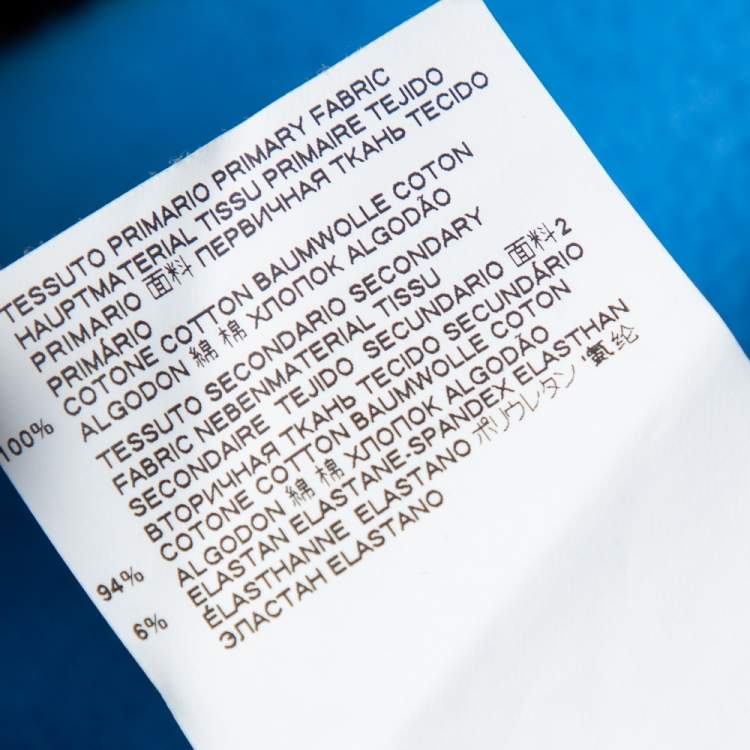 TESSUTO PRIMARIO PRIMARY FABRIC
HAUPTMATERIAL TISSU PRIMAIRE TEJIDO
PRIMARIO 面料 ПЕРВИЧНАЯ ТКАНЬ TECIDO
PRIMÁRIO
100% COTONE COTTON BAUMWOLLE COTON
ALGODON 綿 棉 ХЛОПОК ALGODÃO
TESSUTO SECONDARIO SECONDARY
FABRIC NEBENMATERIAL TISSU
SECONDAIRE TEJIDO SECUNDARIO 面料2
ВТОРИЧНАЯ ТКАНЬ TECIDO SECUNDÁRIO
94% COTONE COTTON BAUMWOLLE COTON
ALGODON 綿 棉 ХЛОПОК ALGODÃO
6% ELASTAN ELASTANE-SPANDEX ELASTHAN
ÉLASTHANNE ELASTANO ポリウレタン 氨纶
ЭЛАСТАН ELASTANO